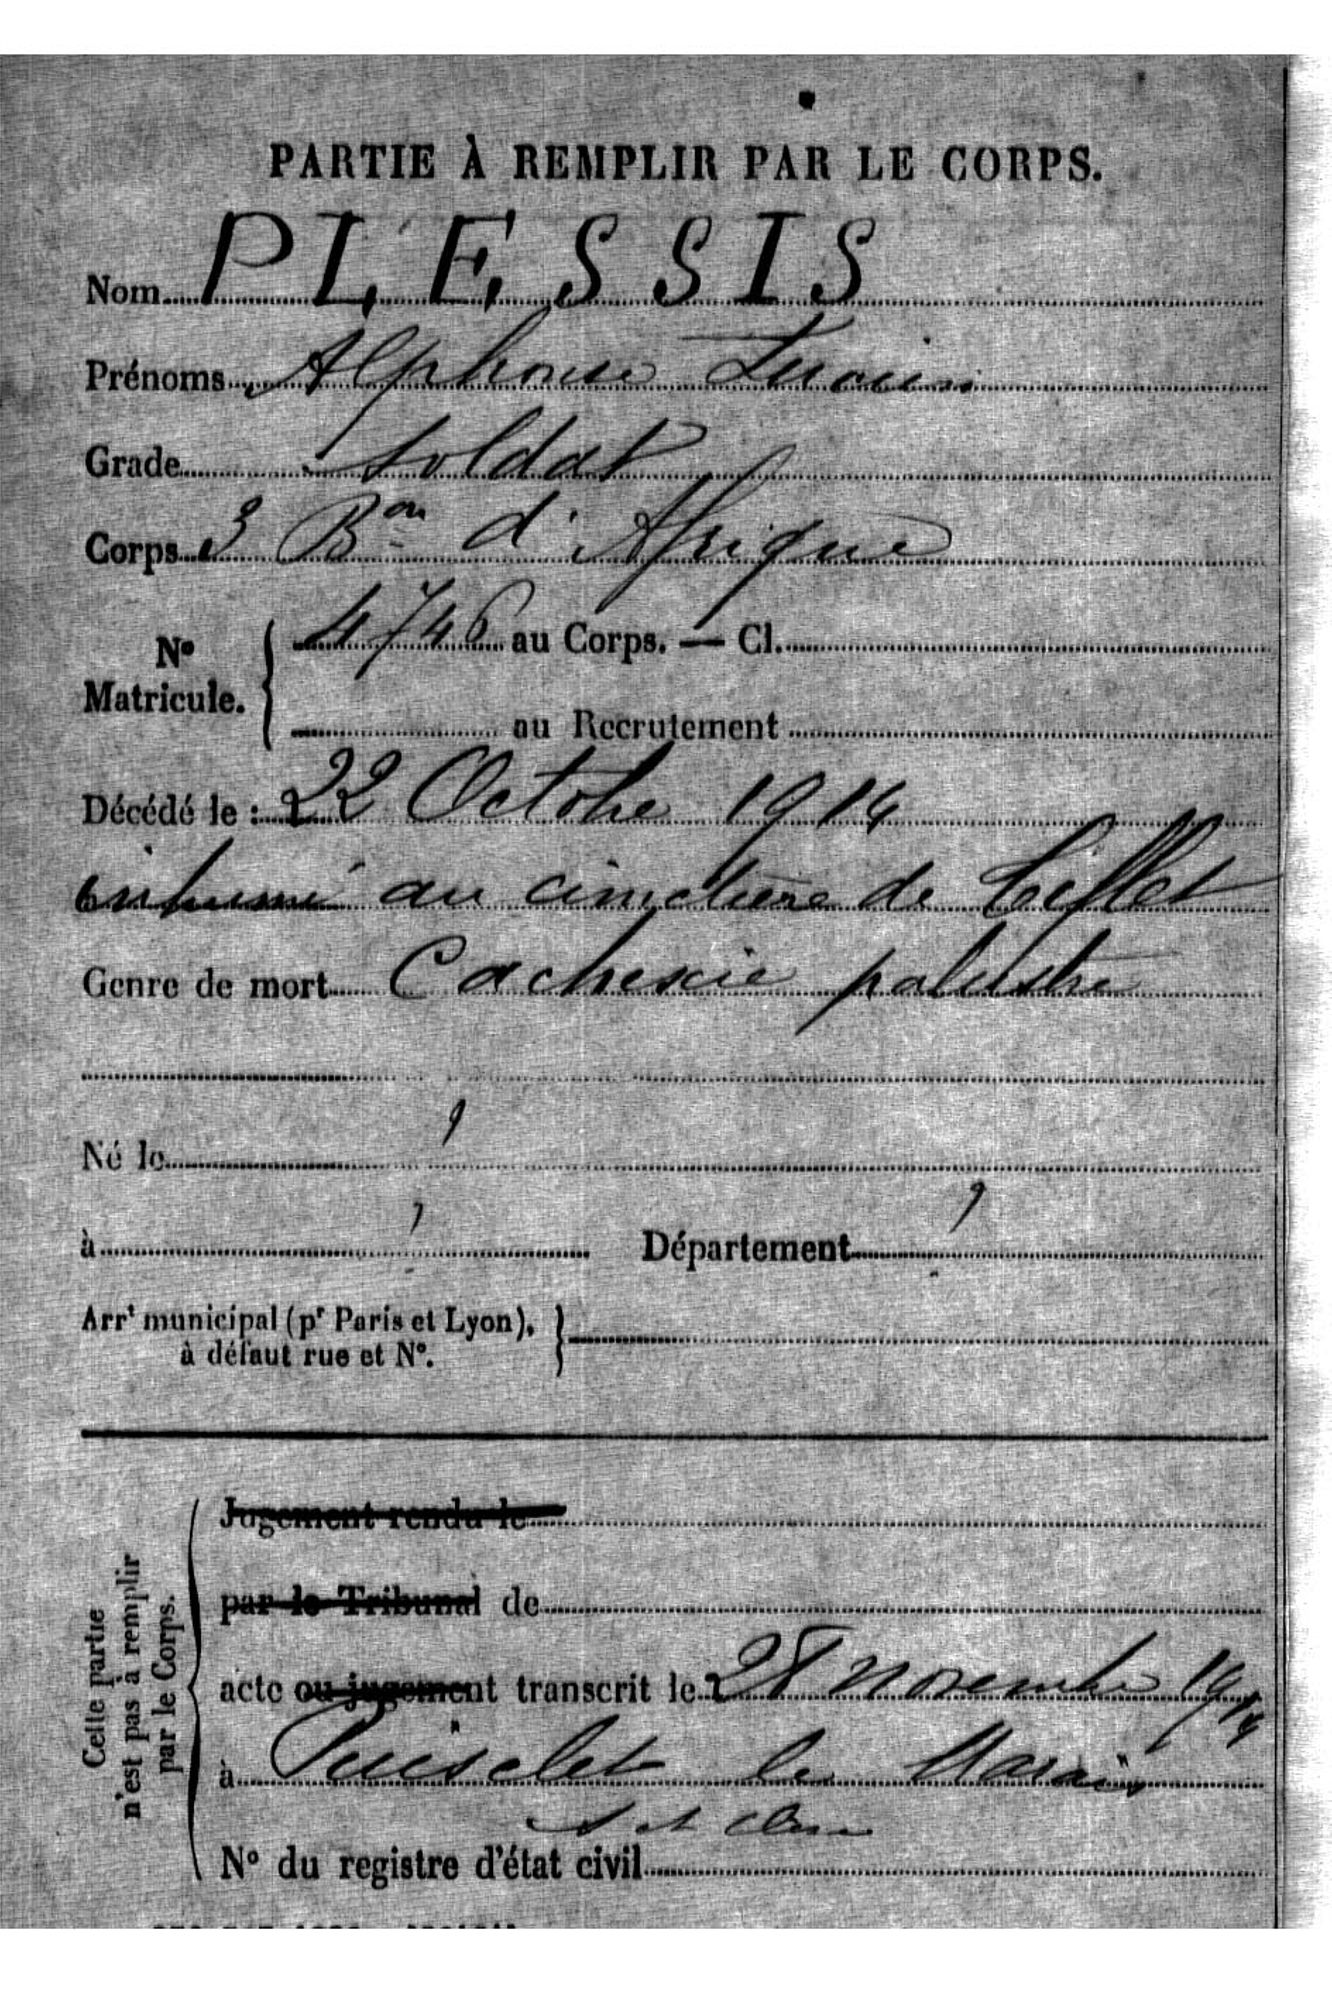 PARTIE À REMPLIR PAR LE CORPS.
Nom PLESSIS
Prénoms Alphonse Lucien
Grade soldat
Corps 3 Bon d'Afrique
No Matricule. 4746 au Corps. — Cl.
au Recrutement
Décédé le : 22 Octobre 1914
inhumé au cimetière de Tiflet
Genre de mort Cachexie palustre
Né le
à Département
Arrt municipal (pr Paris et Lyon),
à défaut rue et No.
Cette partie
n'est pas à remplir
par le Corps.
Jugement rendu le
par le Tribunal de
acte ou jugement transcrit le 28 novembre 1914
à Puiselet le Marais
S et Oise
No du registre d'état civil